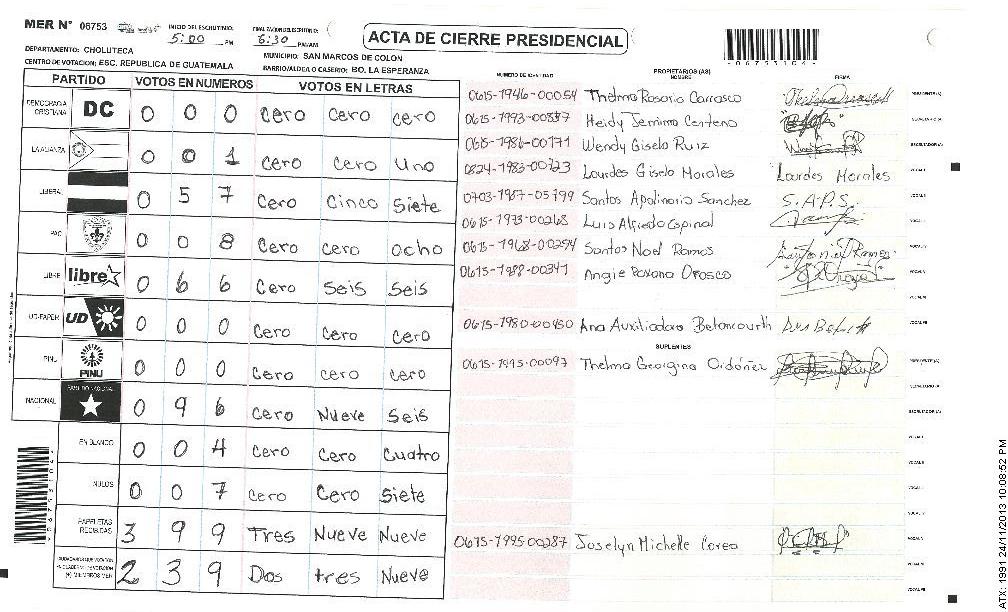 MER N° 06753
INICIO DEL ESCRUTINIO:
5:00 PM
FINALIZACION DEL ESCRUTINIO:
6:30 PM/AM
ACTA DE CIERRE PRESIDENCIAL
-06753104-
DEPARTAMENTO: CHOLUTECA
MUNICIPIO: SAN MARCOS DE COLON
CENTRO DE VOTACION: ESC. REPUBLICA DE GUATEMALA
BARRIO/ALDEA O CASERIO: BO. LA ESPERANZA
PARTIDO VOTOS EN NUMEROS VOTOS EN LETRAS
DEMOCRACIA CRISTIANA DC 0 0 0 Cero Cero Cero
LA ALIANZA 0 0 1 Cero Cero Uno
LIBERAL 0 5 7 Cero Cinco Siete
PAC 0 0 8 Cero Cero Ocho
LIBRE libre 0 6 6 Cero Seis Seis
UD-FAPER UD 0 0 0 Cero Cero Cero
PINU PINU 0 0 0 Cero Cero Cero
NACIONAL PARTIDO NACIONAL 0 9 6 Cero Nueve Seis
EN BLANCO 0 0 4 Cero Cero Cuatro
NULOS 0 0 7 Cero Cero Siete
PAPELETAS RECIBIDAS 3 9 9 Tres Nueve Nueve
2 3 9 Dos tres Nueve
NUMERO DE IDENTIDAD PROPIETARIOS (AS) NOMBRE FIRMA
0615-1946-00054 Thelma Rosario Carrasco PRESIDENTE(A)
0615-1993-00837 Heidy Jemima Centeno SECRETARIO(A)
0615-1986-00171 Wendy Gisela Ruiz ESCRUTADOR(A)
0824-1983-00723 Lourdes Gisela Morales Lourdes Morales VOCAL I
0703-1987-05799 Santos Apolinario Sanchez S.A.P.S. VOCAL II
0615-1973-00268 Luis Alfredo Espinal
0615-1968-00294 Santos Noel Ramos
0615-1988-00341 Angie Roxana Orosco
0615-1980-00450 Ana Auxiliadora Betancourth
SUPLENTES
0615-1995-00097 Thelma Georgina Ordóñez PRESIDENTE(A)
SECRETARIO(A)
ESCRUTADOR(A)
0615-1995-00287 Joselyn Michelle Corea
ATX: 1991 24/11/2013 10:08:52 PM